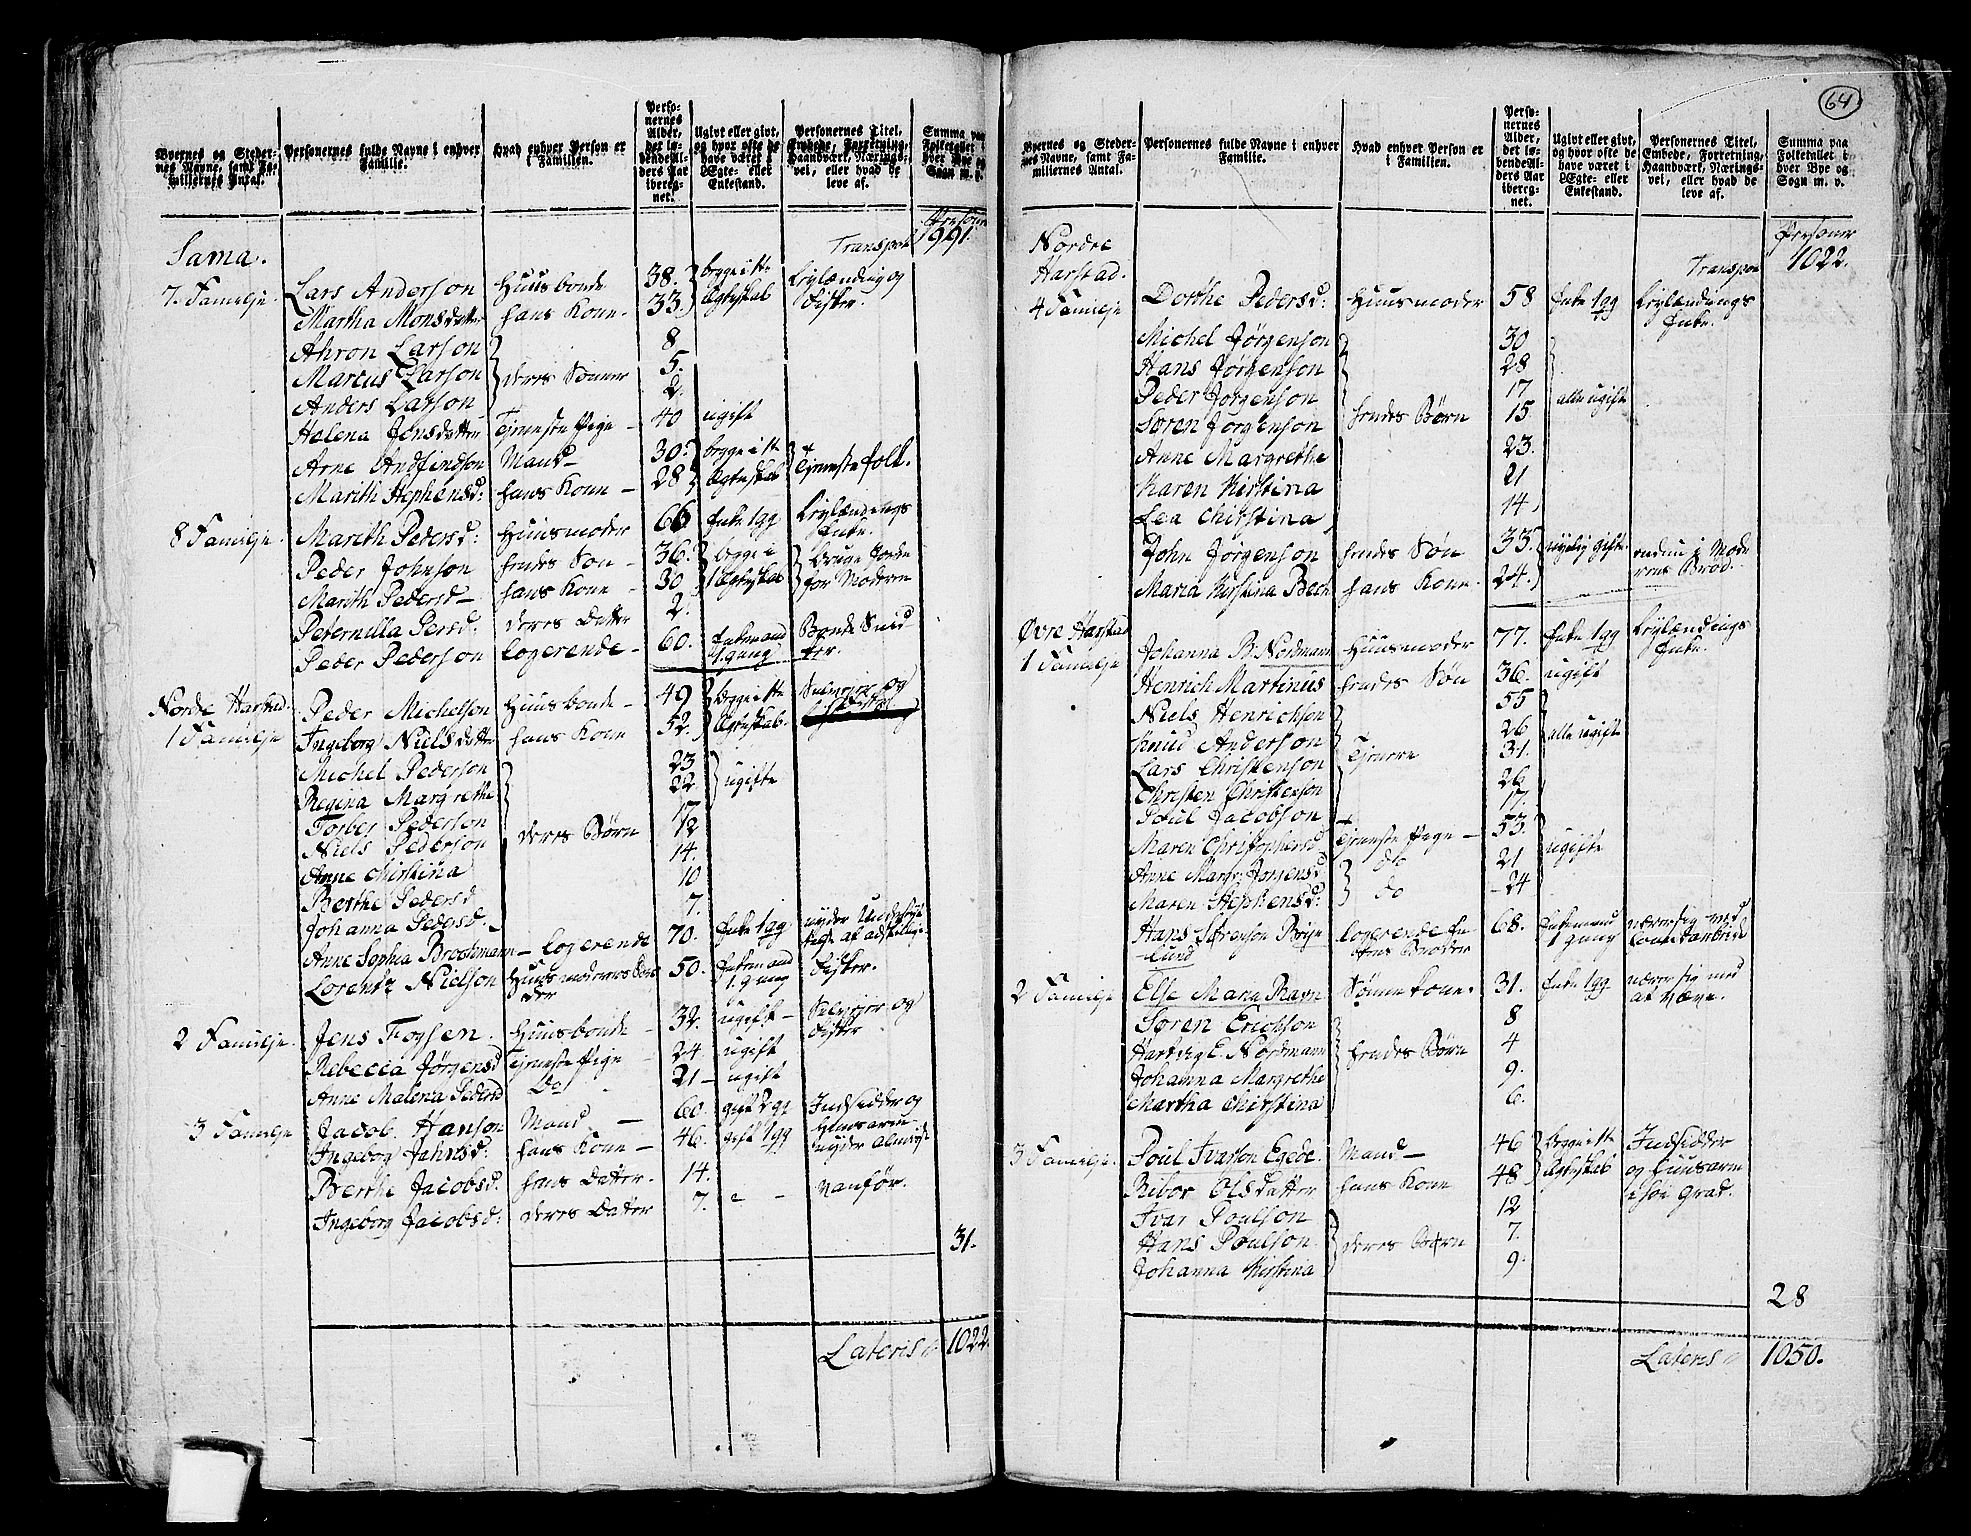 64
Byernes og Steder-
nes Navne, samt Fa-
miliernes Antal.
Personernes fulde Navne i enhver
Familie.
Hvad enhver Person er
i Familien.
Perso-
nernes
Alder,
det lø-
bende Al-
ders Aar
ibereg-
net.
Ugivt eller givt,
og hvor ofte de
have været i
Ægte- eller
Enkestand.
Personernes Titel,
Embede, Forretning,
Haandværk, Nærings-
vei, eller hvad de
leve af.
Summa paa
Folketallet i
hver Bye og
Sogn m. v.
Personer
Transport 991.
Sama.
7. Familje. Lars Anderson Huusbonde 38. begge i 1te Leylænding og
Martha Monsdatter hans Kone. 33. Ægteskab fisker.
Ahron Larson 8
Marcus Larson deres Sønner 5.
Anders Larson 2.
Helena Jonsdatter Tjeneste Pige 40 ugift
Arne Andfindson Mand 30. begge i 1te Tjenestefolk.
Marith Stephensd: hans Kone 28 Ægteskab
8 Familje. Marith Pedersd: Huusmoder 66 Enke 1 gg Leylændings
Enke.
Peder Johnson hendes Søn 36. begge i bruge Jorden
Marith Pedersd hans Kone 30 1 Ægteskab for Moderen
Peternilla Persd: deres Datter 2.
Peder Pederson logerende 60. Enkemand Bonde Smed
1. gang
Norde Harstad. Peder Michelson Huusbonde 49 begge i 1te Selveyer og
1 Familje Ingeborg Nielsdatter hans Kone 52. Ægteskab.
Michel Pederson 23
Regina Margrethe 22 ugifte
Torber Pederson 17
Niels Pederson deres Børn 12
Anne Chirstina 14.
Berthe Pedersd 10
Johanna Pedersd. 7.
Anne Sophia Brochmann logerende 70. Enke 1 gg nyder Underhol
Lorentz Nielson Huusmoderens Bro 50. Enkemand fisker.
der 1. gang
2 Familje. Jens Toysen. Huusbonde 32. ugift Selveyer og
fisker
Rebecca Jørgensd Tjeneste Pige 24 ugift
Anne Malena Pedersd Do 21 ugift
3 Familje Jacob Hanson Mand 60. gift 2 gg Indsidder og
Ingeborg Jahnsd: hans Kone 46. gift 1 gg nyder almisse
Berthe Jacobsd. hans Datter. 14. vanför.
Ingeborg Jacobsd: deres Datter 7.
31.
Lateris 1022.
Byernes og Steder-
nes Navne, samt Fa-
miliernes Antal.
Personernes fulde Navne i enhver
Familie.
Hvad enhver Person er
i Familien.
Perso-
nernes
Alder,
det lø-
bende Al-
ders Aar
ibereg-
net.
Ugivt eller givt,
og hvor ofte de
have været i
Ægte- eller
Enkestand.
Personernes Titel,
Embede, Forretning,
Haandværk, Nærings-
vei, eller hvad de
leve af.
Summa paa
Folketallet i
hver Bye og
Sogn m. v.
Personer
Transport 1022.
Nordre
Harstad.
4 Familje Dorthe Pedersd: Huusmoder 58 Enke 1 gg Leylændings
Enke.
Michel Jørgenson 30
Hans Jørgenson 28
Peder Jørgenson 17 alle ugift
Soren Jorgenson hendes Børn 15
Anne Margrethe 23.
Karen Kirstina 21
Lea Chirstina 14
John Jørgenson hendes Søn 33. gifte i Mode
Maria Kirstina Bech hans Kone. 24. rens Brød.
Øvre Harstad
1 Familje Johanna B. Nordmann Huusmoder 77. Enke 1 gg Leylændings
Enke.
Henrich Martinus hendes Søn 36. ugift
Niels Henrichson 55
Knud Anderson 26 alle ugift
Lars Christenson Tjenere 31.
Christen Christenson 26
Poul Jacobson 17.
Maren Christophersd Tjeneste Pige 53. ugifte
Anne Margr: Jonsensd do 21
Maren Stephensd: do 24
Hans Sørenson logerende En 68. Enkemand nærer sig med
lund kens Broder 1 gang
2 Familje Else Maria Ravn Sønnekone. 31. Enke 1 gg nærer sig med
at væve.
Søren Erichson 8
Hartvig E. Nordmann hendes Børn 4
Johanna Margrethe 9.
Martha Chirstina 6.
3 Familje. Poul Ivarson Egede. Mand 46 begge i 1te Indsidder
Ribor Olsdatter hans Kone 48 Ægteskab og huusarm
Ivar Poulson 12 i høi Grad.
Hans Poulson deres Børn 7.
Johanna Kirstina 9.
28
Lateris 1050.